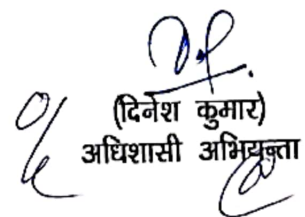 (दिनेश कुमार)
अधिशासी अभियन्ता